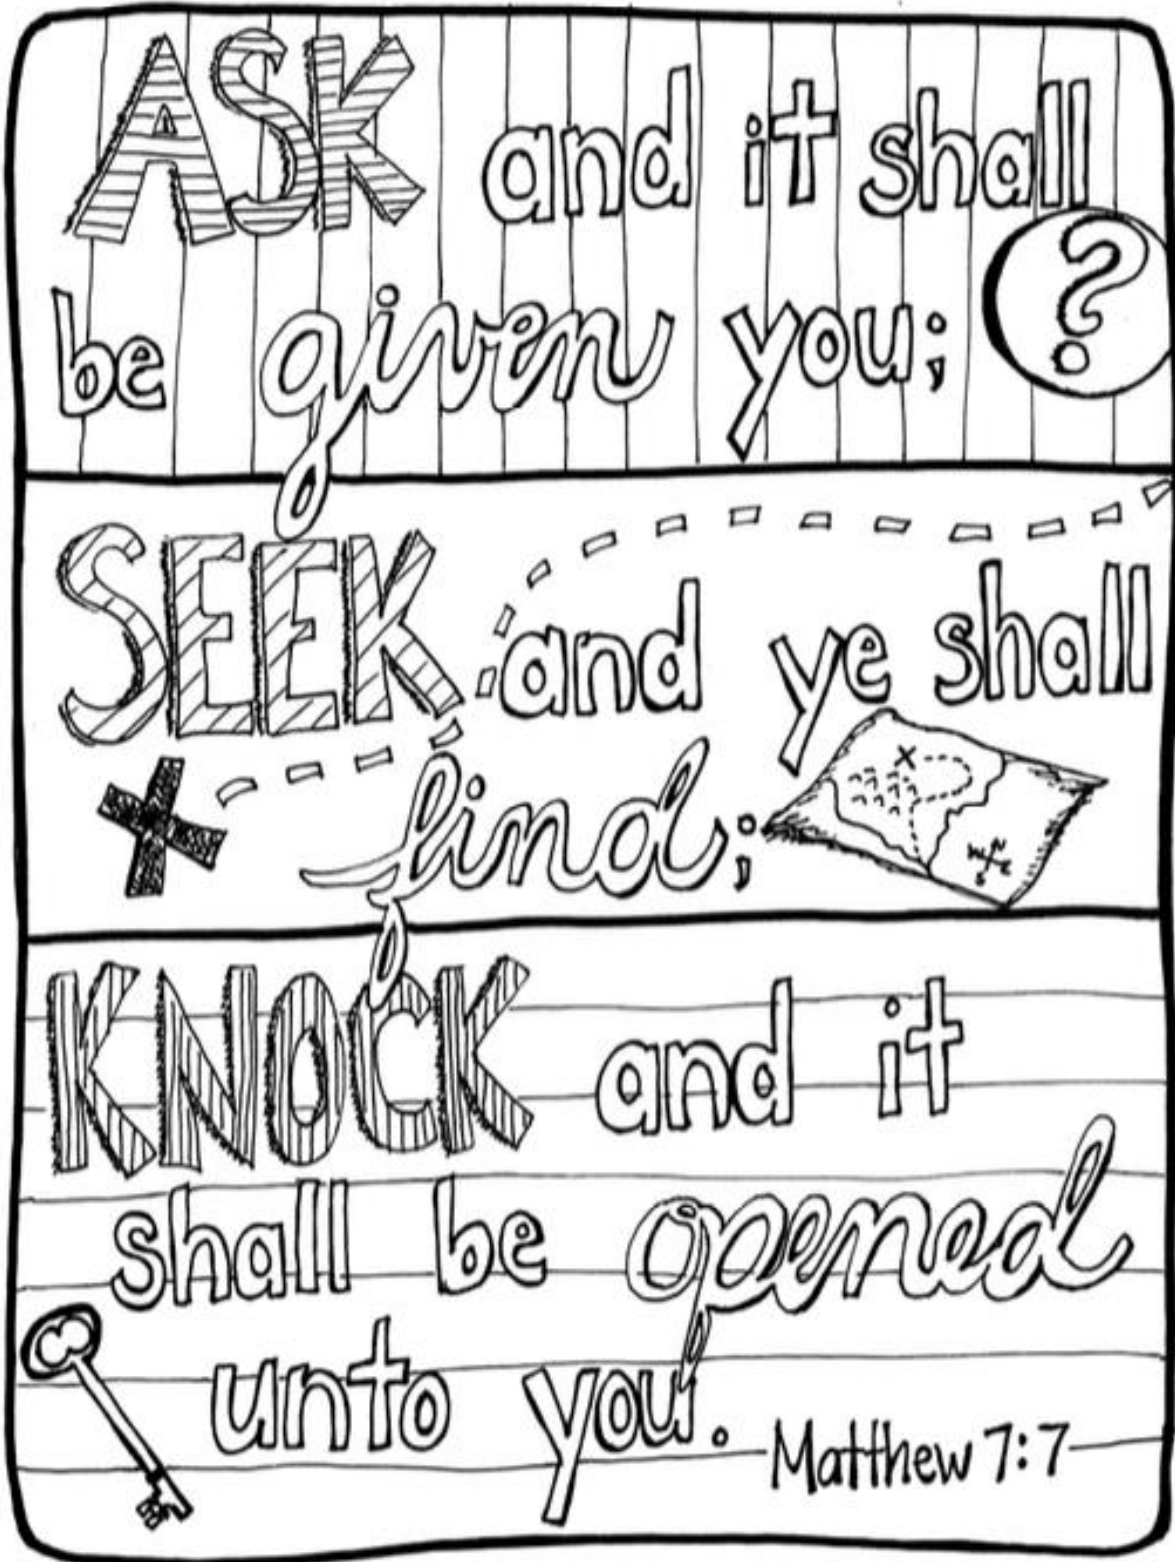 ASK and it shall
be given you; ?
SEEK and ye shall
find;
X
N
W E
S
KNOCK and it
shall be opened
unto you.
Matthew 7:7